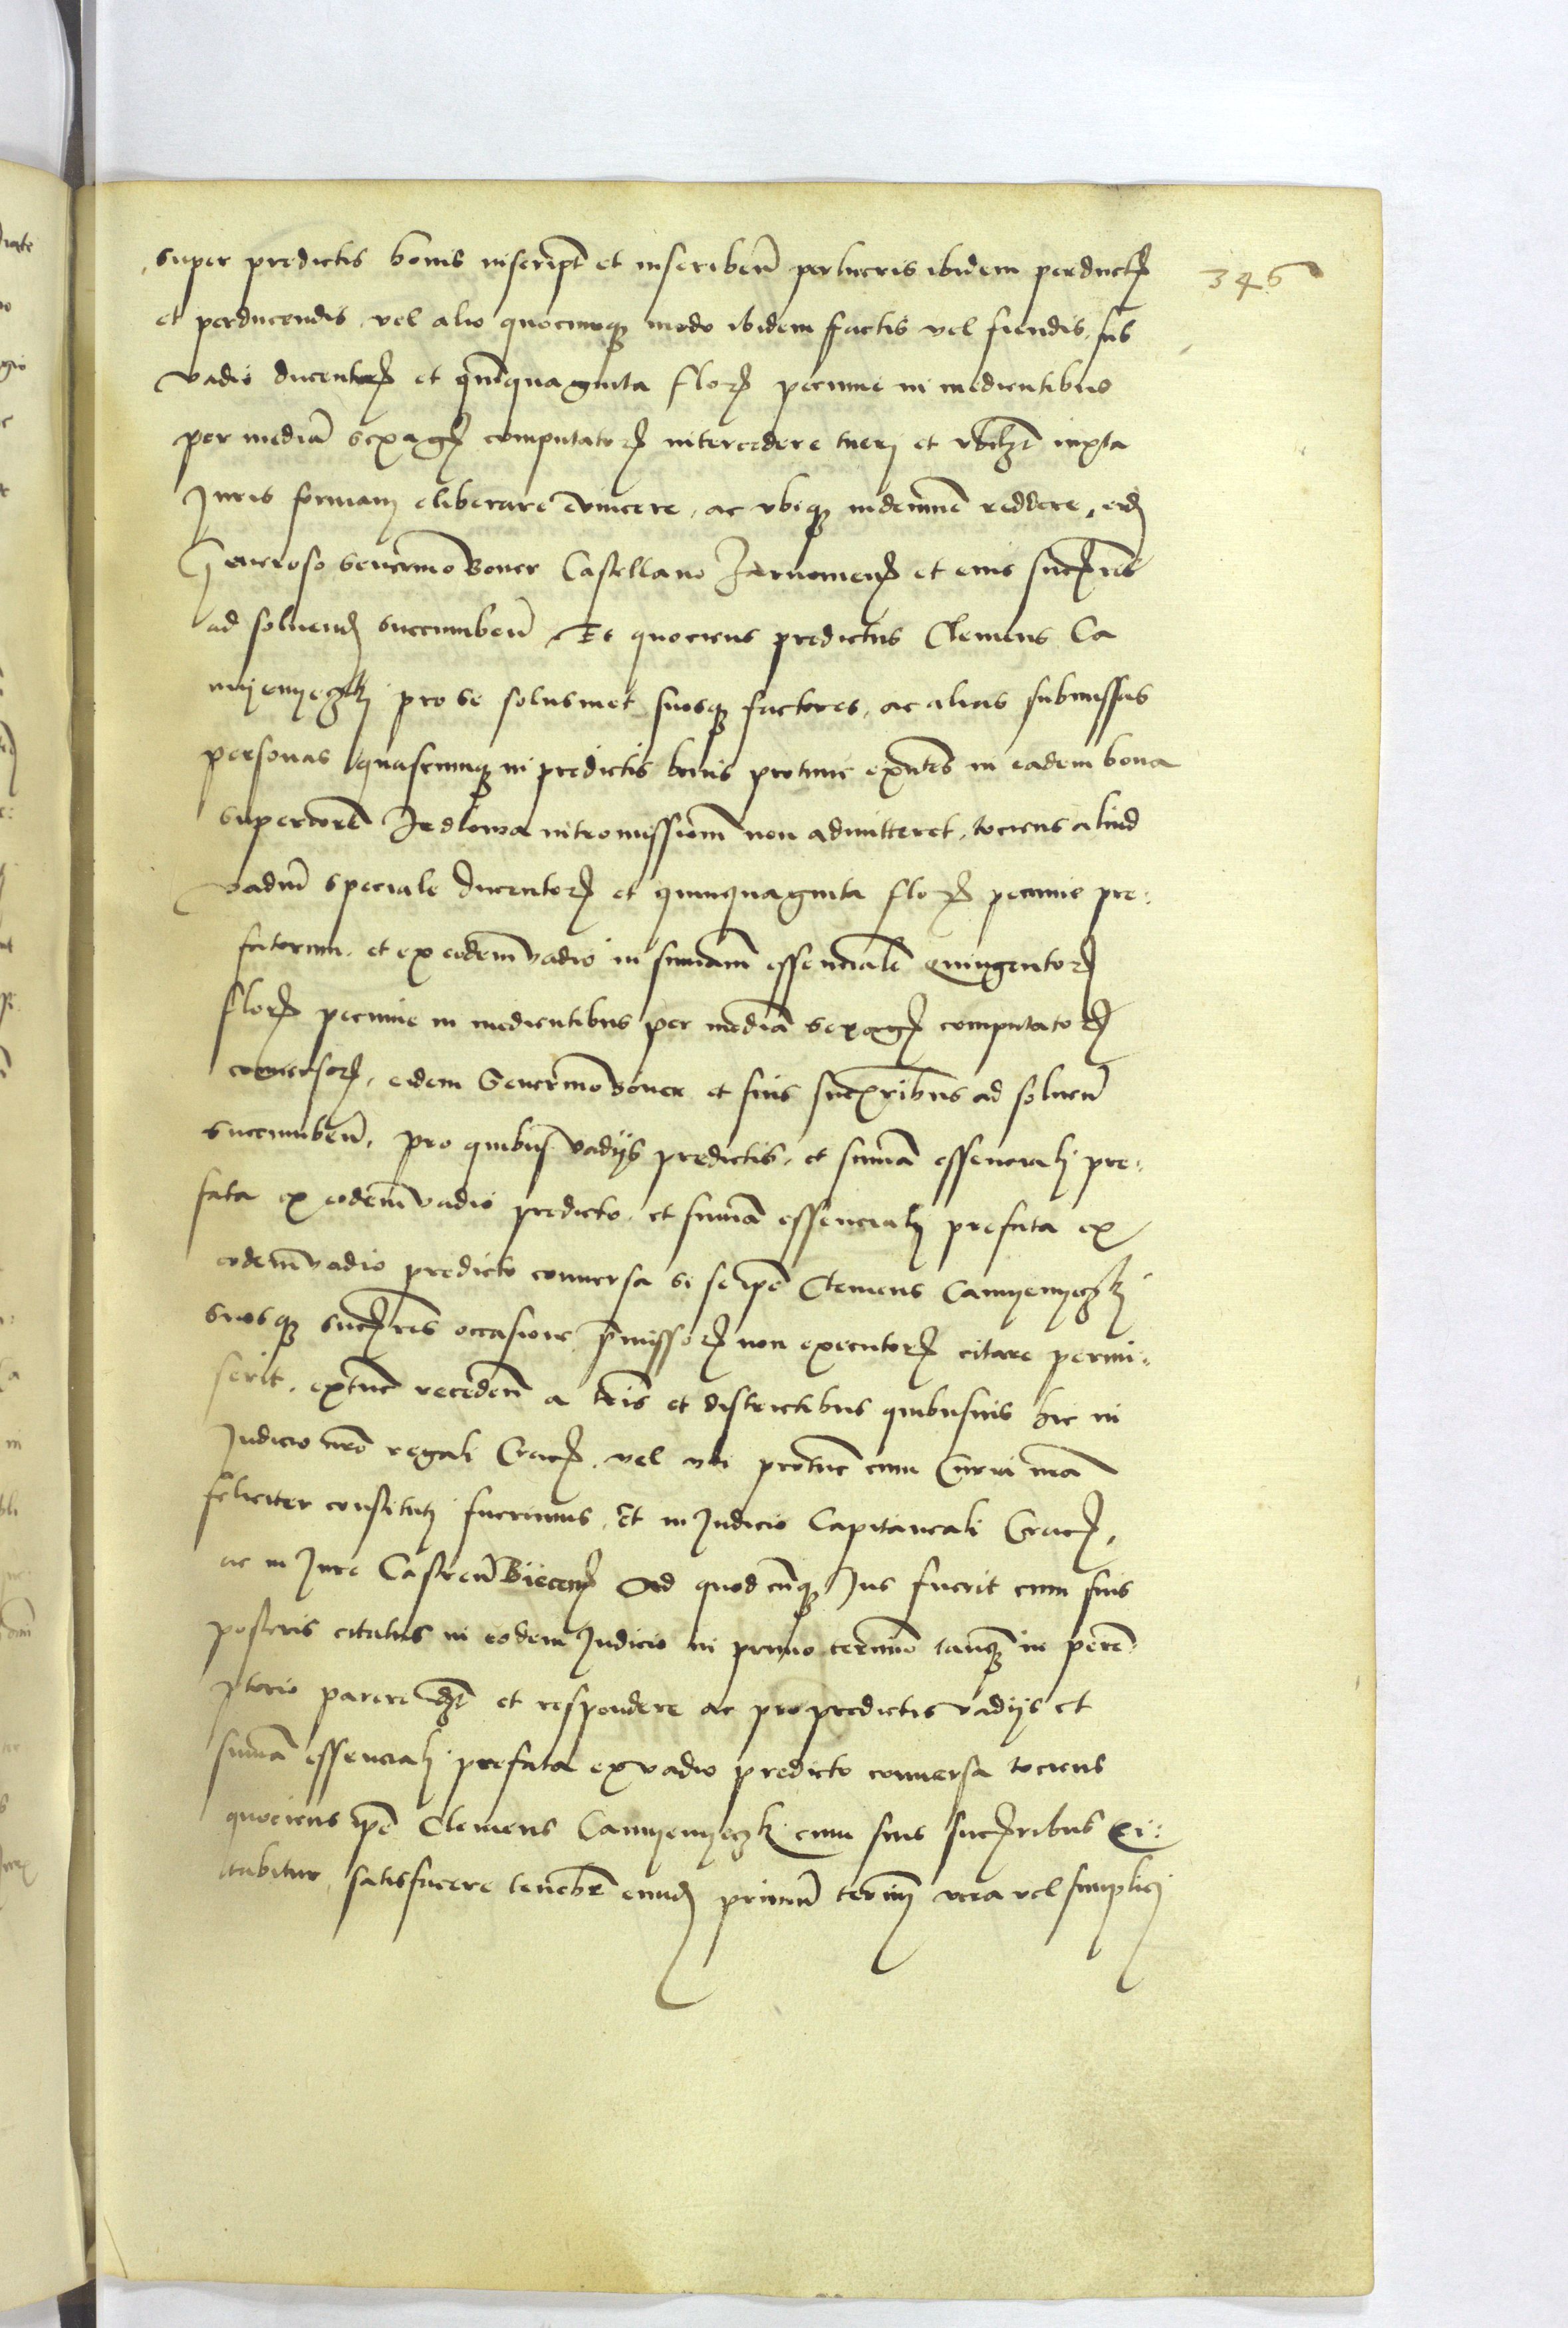 346
super predictis bonis inscript et inscriben̄ per lucris ibidem perduct
et perducendis, vel alio quocunqȝ modo ibidem factis vel fiendis, sub
vadio ducentorꝝ et quīnquaginta florꝝ pecunie in medientibus
per mediā sexagꝫ computatorꝝ intercedere tueri et iuxta
Juris formam eliberare evincere, ac ubiqȝ indemnē reddere, eidꝫ
Generoso Severino Boner Castellano Zarnowienꝫ et eius succꝫres
ad soluendꝫ succumben̄ Et quociens predictus Clemens Ca
myenyeczkj pro se solusmet suosqȝ factores, ac alias submissas
personas quascunqȝ in predictis bonis protunc exn̄tes in eadem bona
superiorē Jedlowa intromissionē non admitteret, tociens aliud
vadiū speciale ducentorꝝ et quinquaginta florꝝ pecunie pre-
fatorum, et ex eodem vadio in summam essencialē quingentorꝝ
florꝝ pecunie in medientibus per mediā sexagꝫ computatorꝝ
conversorꝝ, eidem Severino Boner et suis succꝫribus ad soluen̄
succumben̄, pro quibus vadijs predictis, et summa essenciali pre-
fata ex eodem vadio predicto, et summa essenciali prefata ex
eodem vadio predicto conversa si se ipē Clemens Camyenyeczkj
suosqȝ succꝫres occasione p̄missorꝝ non executorꝝ citare permi-
serit, extunc receden̄ a tris et districtibus quibusuis hic in
Judicio nrō regali Cracꝫ, vel ubi protunc cum Curia nrā
feliciter constituti fuerimus, Et in Judicio Capitaneali Cracꝫ,
ac in Jure Castren̄ Biecenꝫ Ad quodcūqȝ Jus fuerit cum suis
posteris citatus in eodem Judicio in primo termino tanqȝ in perē-
ptorio parere et respondere ac pro predictis vadijs et
summa essenciali prefata ex vadio predicto conversa tociens
quociens ipē Clemens Camyenyeczkj cum suis succꝫribus ci-
tabitur, satisfacere tenebr̄ eundꝫ primū terminꝫ vera vel simplici